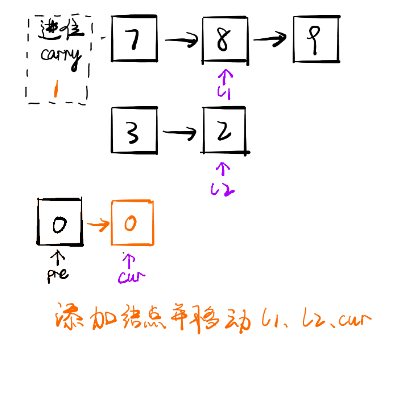 进位
carry
1
7 8 9
l1
3 2
l2
0 0
pre cur
添加结点并移动 l1、l2、cur